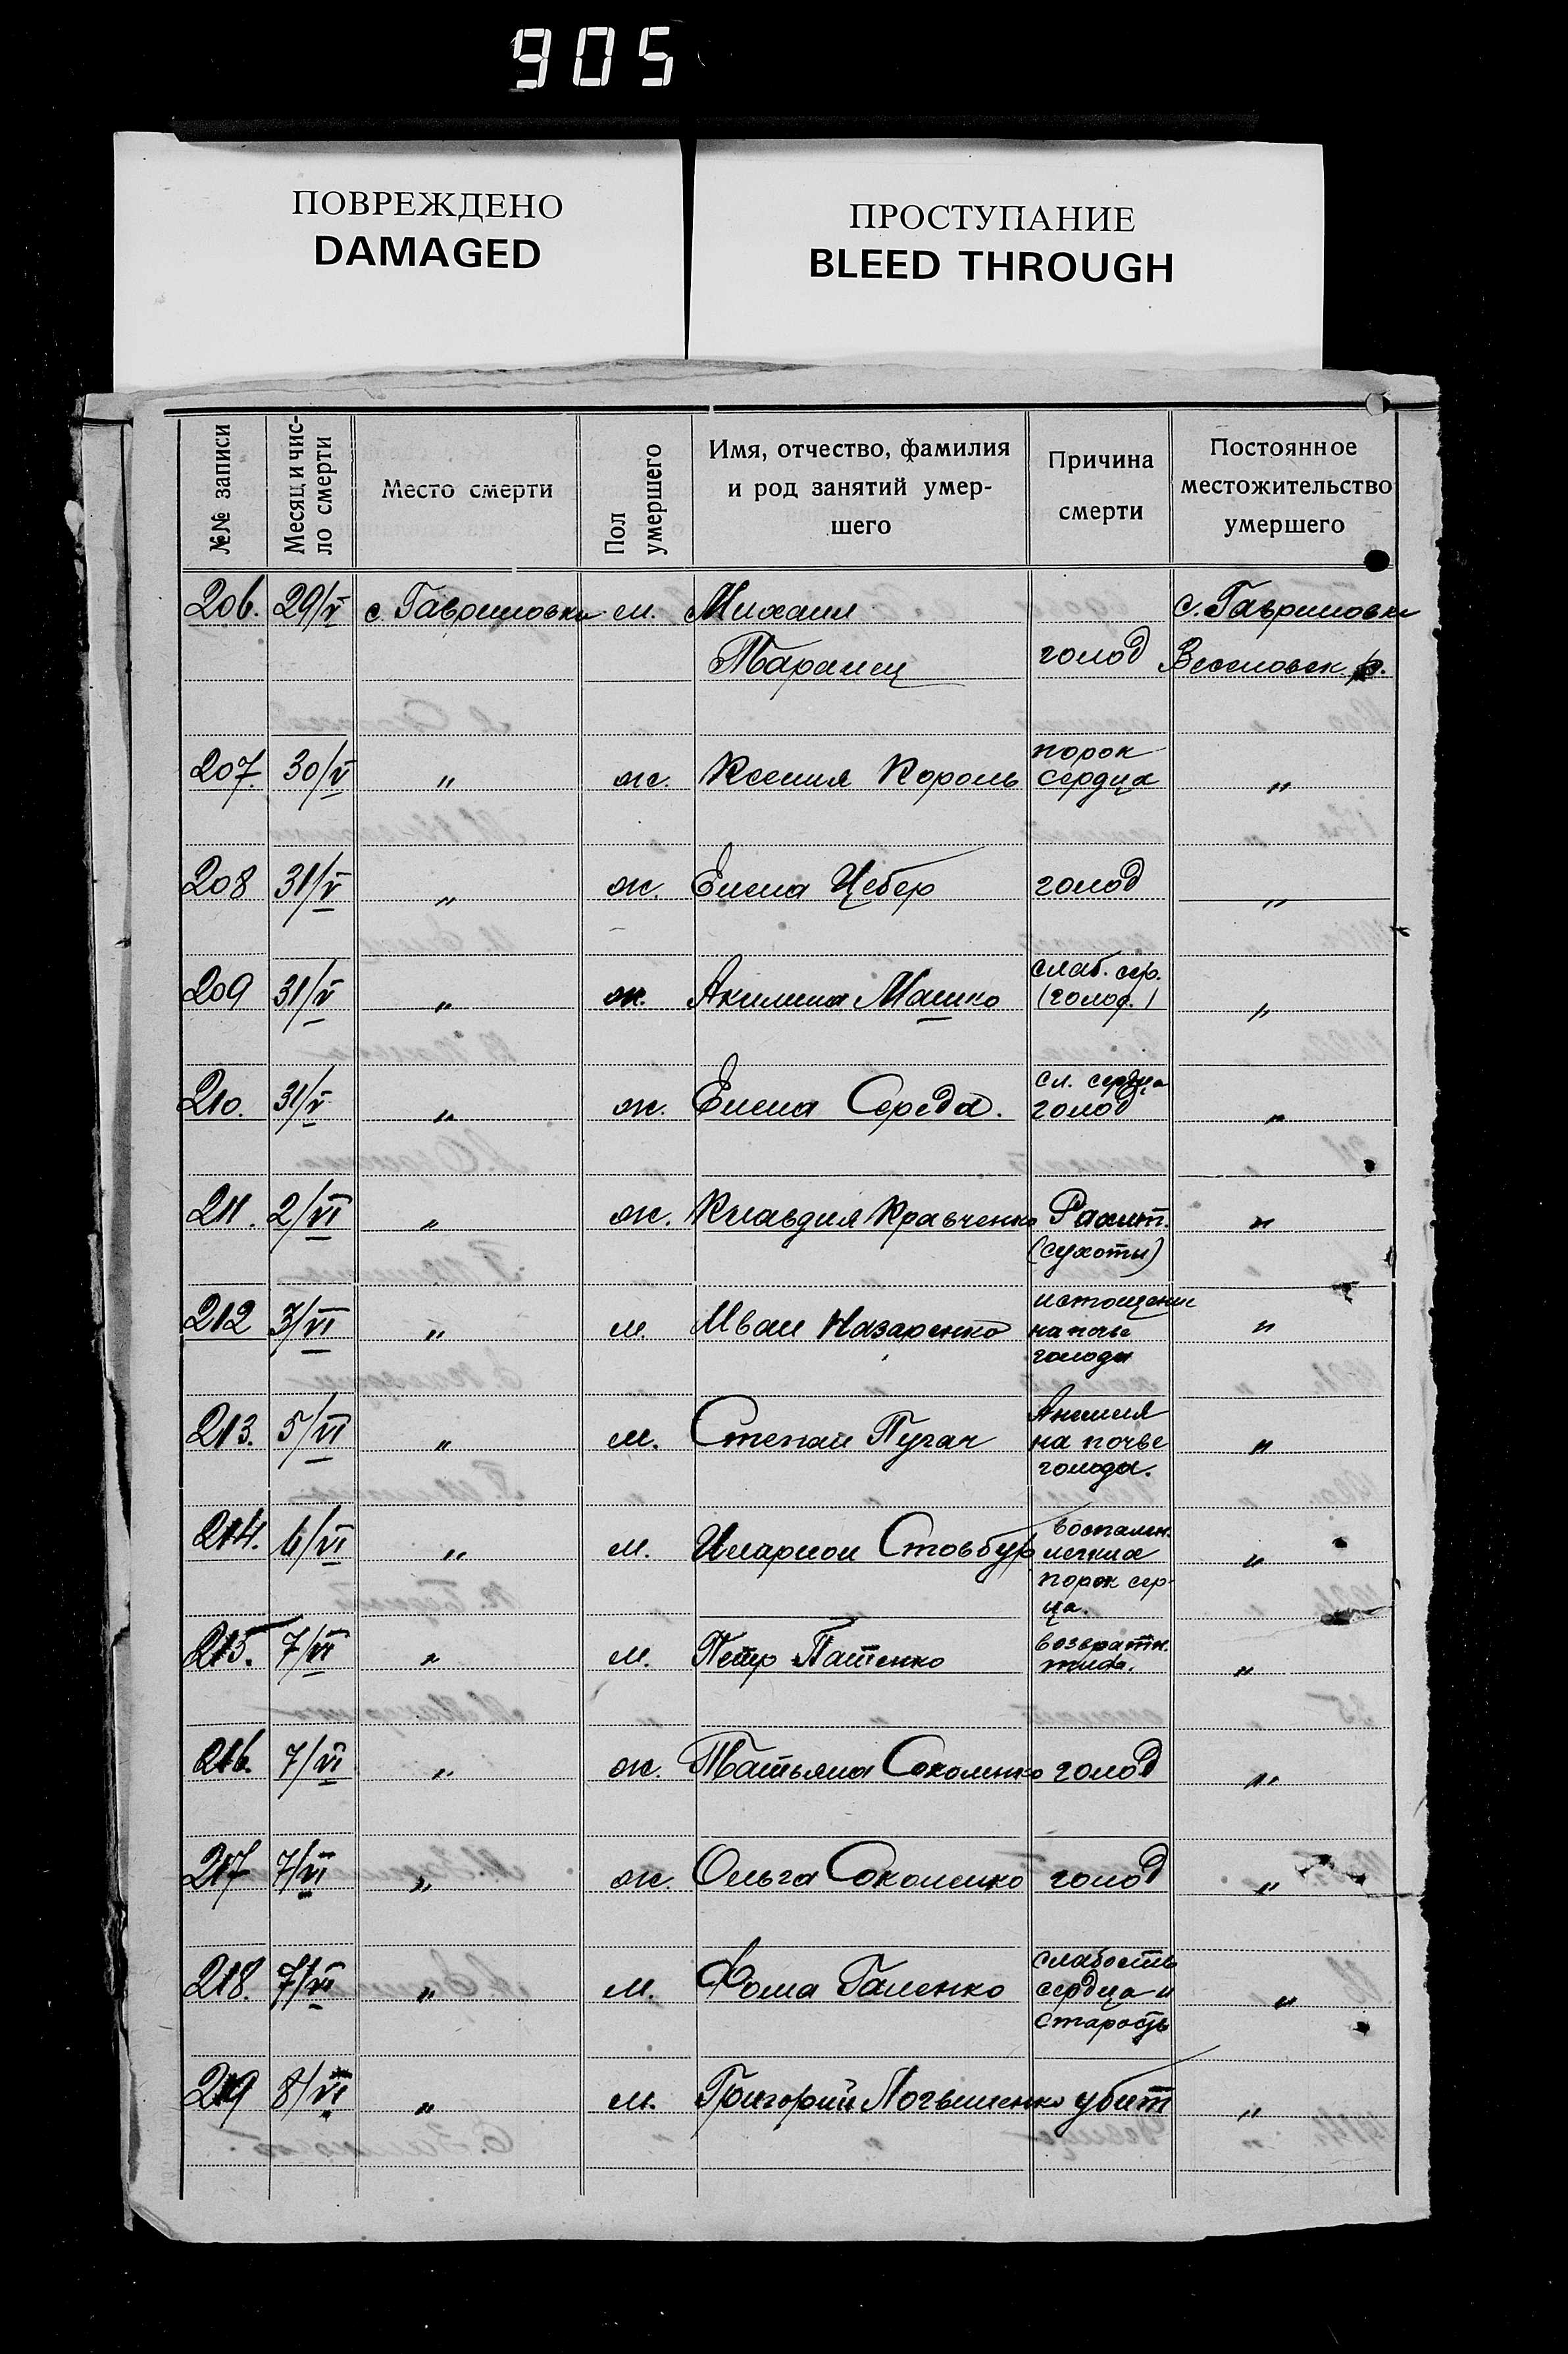 905
ПОВРЕЖДЕНО
DAMAGED
ПРОСТУПАНИЕ
BLEED THROUGH
№№ записи
Месяц и чис-
ло смерти
Место смерти
Пол
умершего
Имя, отчество, фамилия
и род занятий умер-
шего
Причина
смерти
Постоянное
местожительство
умершего
206. 29/V с. Гавриловка м. Михаил с. Гавриловка
Таранец голод Веселовск. р.
порок
207. 30/V " ж. Ксения Король сердца "
208 31/V " ж. Елена Цебер голод "
слаб. сер.
209 31/V " ж. Акилина Машко (голод.) "
сл. сердца
210. 31/V " ж. Елена Середа. голод "
211. 2/VI " ж. Клавдия Кравченко Рахит. "
(сухоты)
истощение
212 3/VI " м. Иван Назаренко на почве "
голода
Анемия
213. 5/VI " м. Степан Пугач на почве "
голода.
воспален.
214. 6/VI " м. Иларион Стовбур легких "
порок сер-
ца.
возвратн.
215. 7/VI " м. Петр Пащенко тиф. "
216. 7/VI " ж. Татьяна Соколенко голод "
217 7/VI " ж. Ольга Соколенко голод "
слабость
218. 7/VI " м. Фома Галенко сердца и "
старость
219 8/VI " м. Григорий Логвиненко убит "